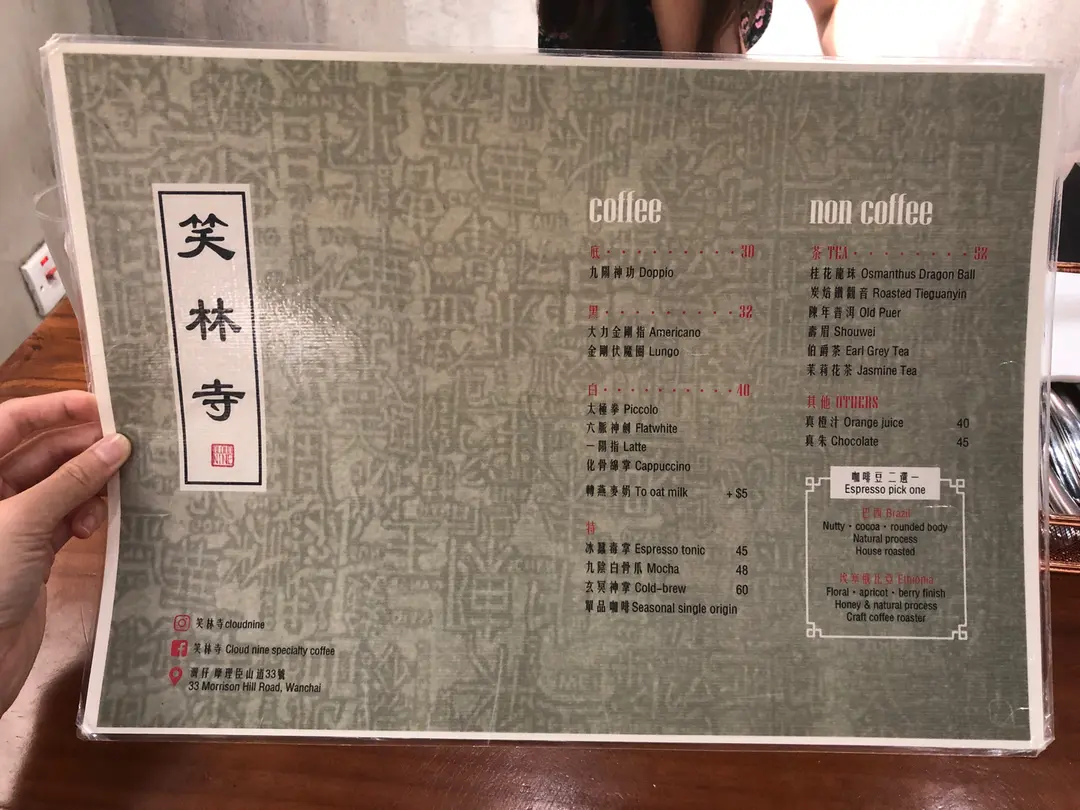 笑林寺
笑林寺cloudnine
笑林寺 Cloud nine specialty coffee
灣仔摩理臣山道33號
33 Morrison Hill Road, Wanchai
coffee
底 30
九陽神功 Doppio
黑 32
大力金剛指 Americano
金剛伏魔圈 Lungo
白 40
太極拳 Piccolo
六脈神劍 Flatwhite
一陽指 Latte
化骨綿掌 Cappuccino
轉燕麥奶 To oat milk +$5
特
冰蠶毒掌 Espresso tonic 45
九陰白骨爪 Mocha 48
玄冥神掌 Cold-brew 60
單品咖啡 Seasonal single origin
non coffee
茶 TEA 52
桂花龍珠 Osmanthus Dragon Ball
炭焙鐵觀音 Roasted Tieguanyin
陳年普洱 Old Puer
壽眉 Shouwei
伯爵茶 Earl Grey Tea
茉莉花茶 Jasmine Tea
其他 OTHERS
真橙汁 Orange juice 40
真朱 Chocolate 45
咖啡豆二選一
Espresso pick one
巴西 Brazil
Nutty・cocoa・rounded body
Natural process
House roasted
埃塞俄比亞 Ethiopia
Floral・apricot・berry finish
Honey & natural process
Craft coffee roaster